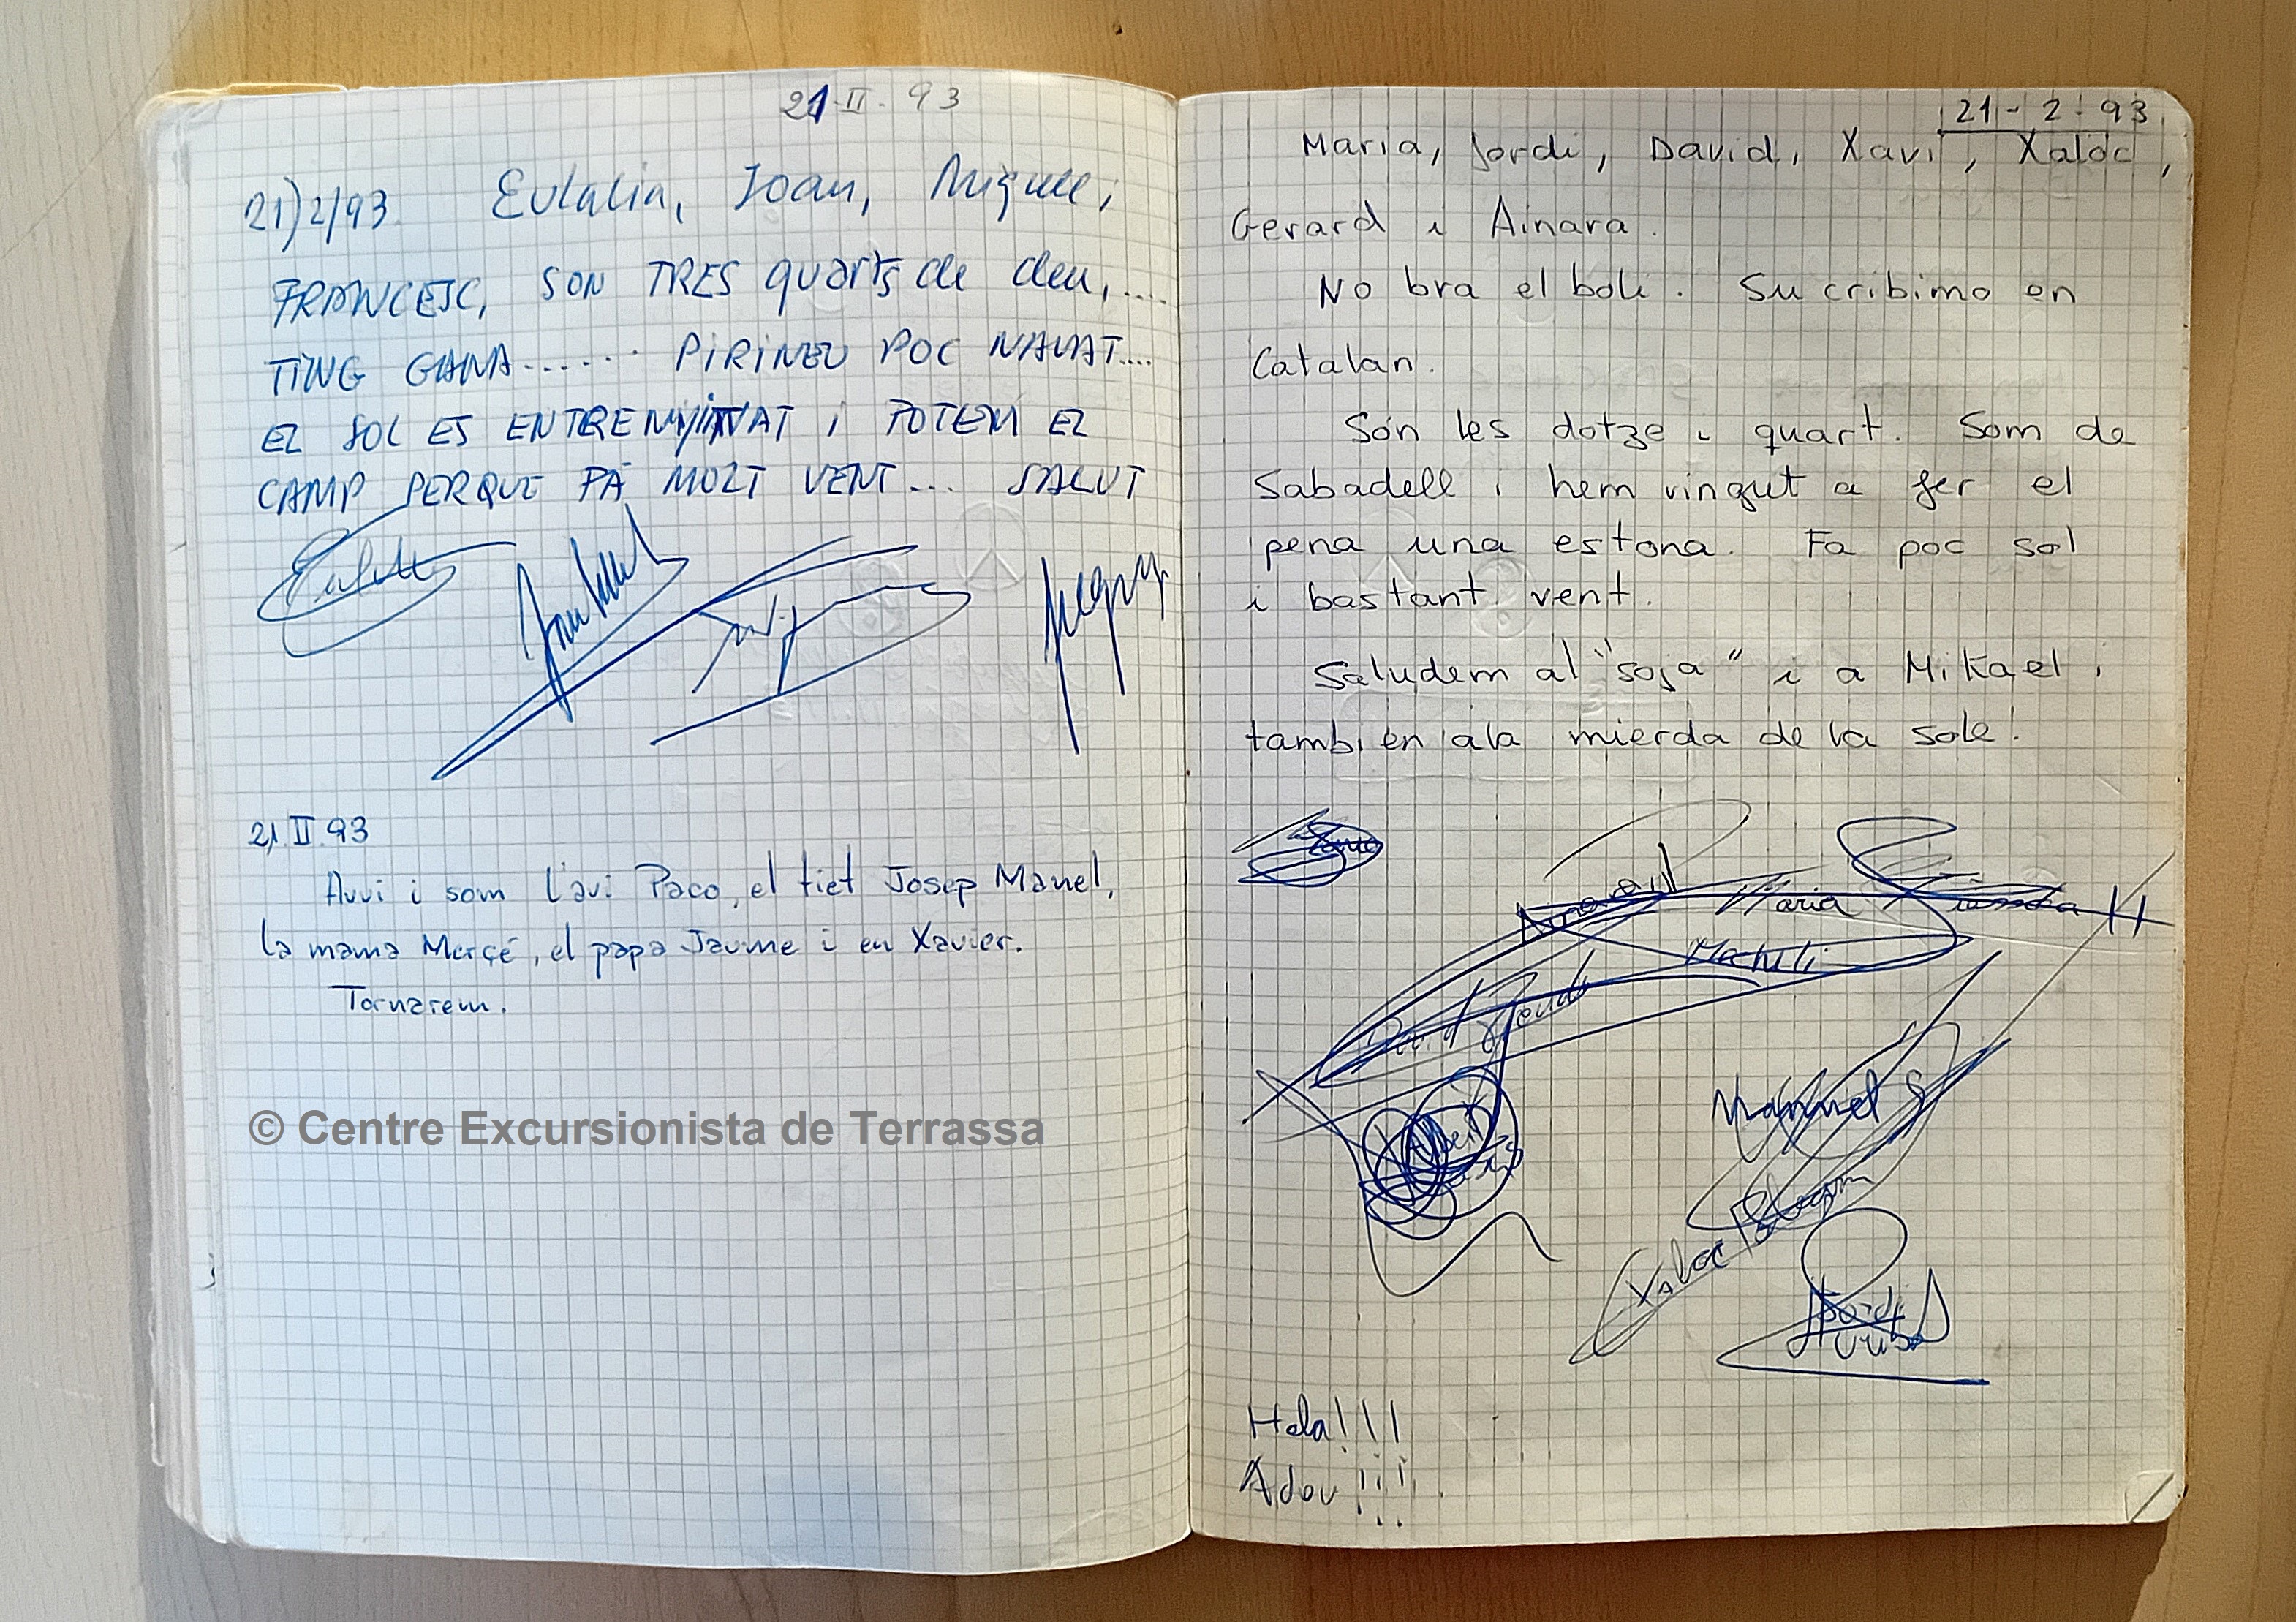 21-II-93
21)2/93 Eulalia, Joan, Miquel i
FRANCESC, SON TRES quarts de deu,....
TING GANA...... PIRINEU POC NAVAT....
EL SOL ES ENTRENYINAT i FOTEM EL
CAMP PERQUE FA MOLT VENT... SALUT
21.II.93
Avui i som l'avi Paco, el tiet Josep Manel,
la mama Merçé, el papa Jaume i en Xavier.
Tornarem.
© Centre Excursionista de Terrassa
21-2-93
Maria, Jordi, David, Xavi, Xaloc,
Gerard i Ainara.
No bra el boli. Su cribimo en
Catalan.
Són les dotze i quart. Som de
Sabadell i hem vingut a fer el
pena una estona. Fa poc sol
i bastant vent.
Saludem al "soja" i a Mikael i
tambien ala mierda de la sole!
Maria
David
Xaloc
Jordi
Hola!!!
Adeu!!!